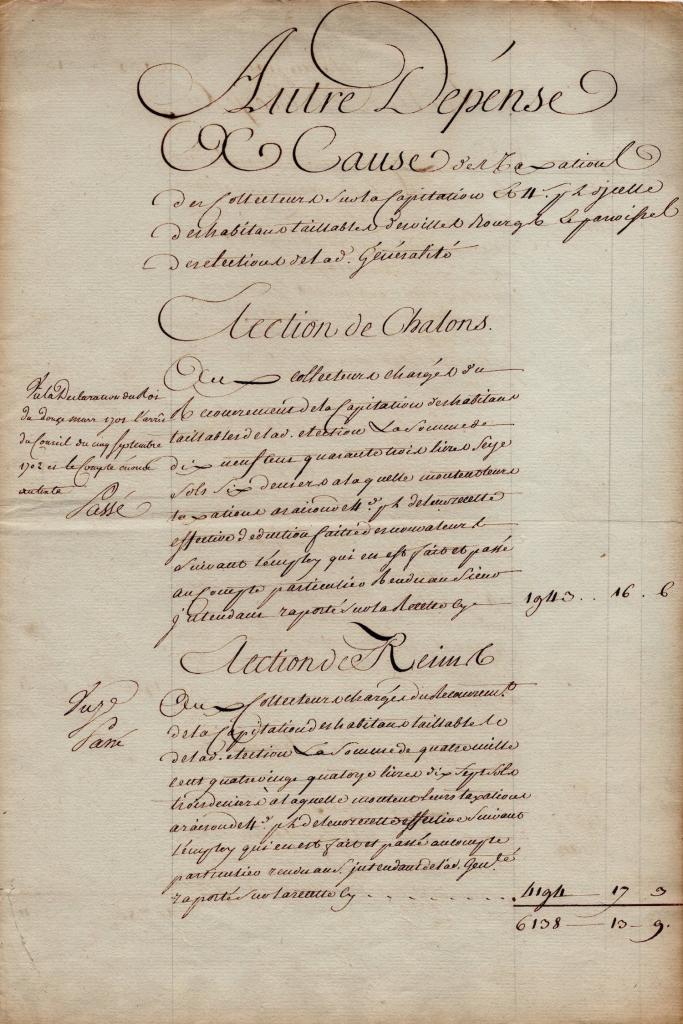 Autre Dépense
A Cause des Taxations
des Collecteurs sur la Capitation Et 4.s p.r £ d'jcelle
des habitans taillables des villes Bourgs Et paroisses
des elections de lad. Généralité
Election de Chalons.
Vu la Declaration du Roi
du douze mars 1701 l'arrêt
du Conseil du cinq septembre
1702 et le Compte énoncé
au texte
Passé
Aux collecteurs chargés du
Recouvrement de la Capitation des habitans
taillables de lad. election La Somme de
dix neuf cent quarante trois livres Seize
Sols Six deniers a laquelle montent leurs
taxations a raison de 4.s p.r £ de leur recette
effective deduction faitte des nonvaleurs
Suivant l'employ qui en est fait et passé
au Compte particulier Rendu au Sieur
jntendant raporté Sur la Recette Cy 1943 .. 16 . 6
Election de Reims
Vu ...
Passé
Aux Collecteurs chargés du Recouvrem.t
de la Capitation des habitans taillables
de lad. election La Somme de quatre mille
cent quatre vingt quatorze livres dix Sept Sols
trois deniers a laquelle montent leurs taxations
a raison de 4.s p.r £ de leur recette effective Suivant
l'employ qui en est fait et passé au compte
particulier rendu au S. jntendant de lad. Gen.té
raporté Sur la recette Cy . . . . . . . . . 4194 — 17 3
6138 — 13 — 9.